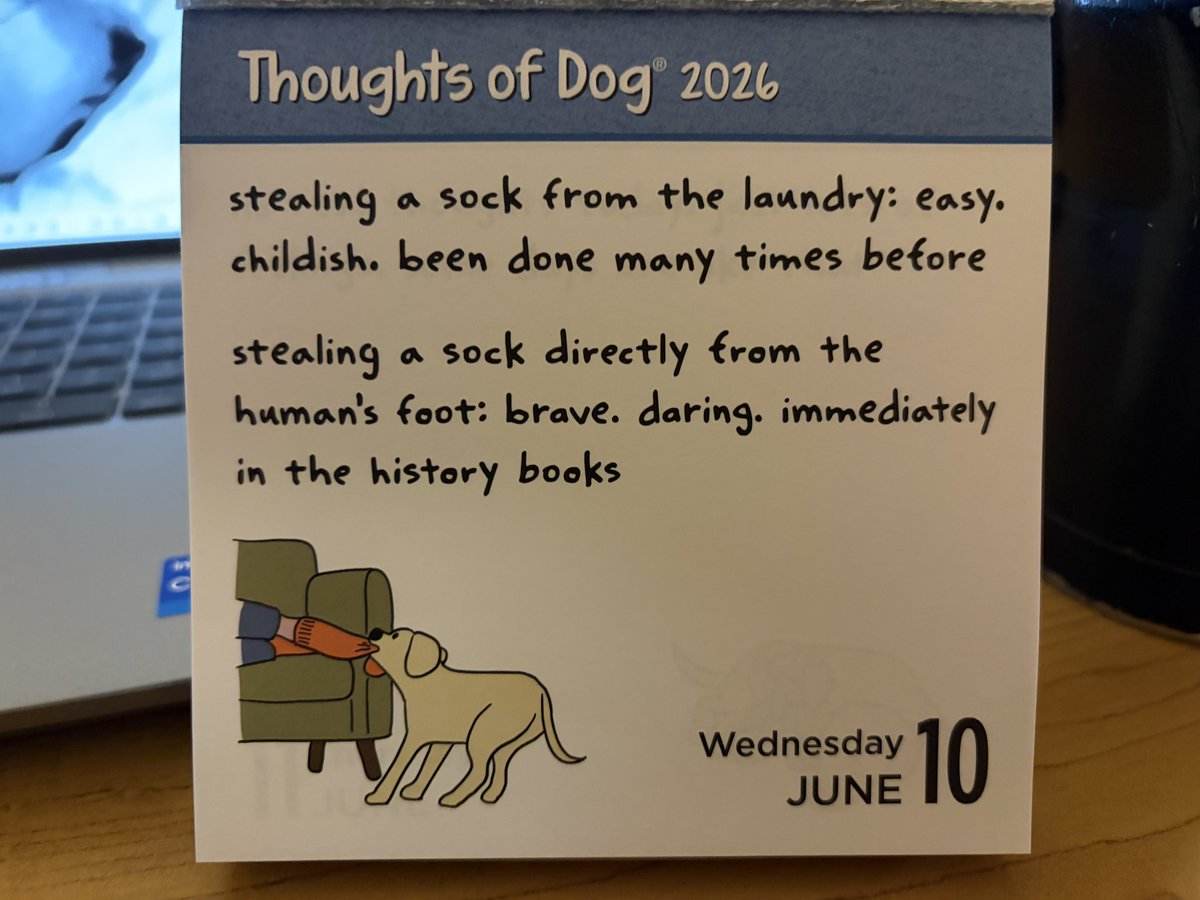 Thoughts of Dog® 2026
stealing a sock from the laundry: easy.
childish. been done many times before
stealing a sock directly from the
human's foot: brave. daring. immediately
in the history books
Wednesday
JUNE 10